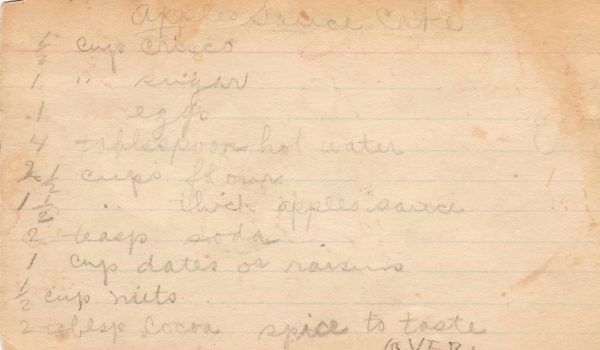 Apples Sauce Cake
1/2 cup crisco
1 " sugar
1 eggs
4 tablespoon hot water
2 1/2 cups flour
1 1/2 " thick apples sauce
2 teasp soda
1 cup dates or raisins
1/2 cup nuts
2 tablesp Cocoa spice to taste
(OVER)